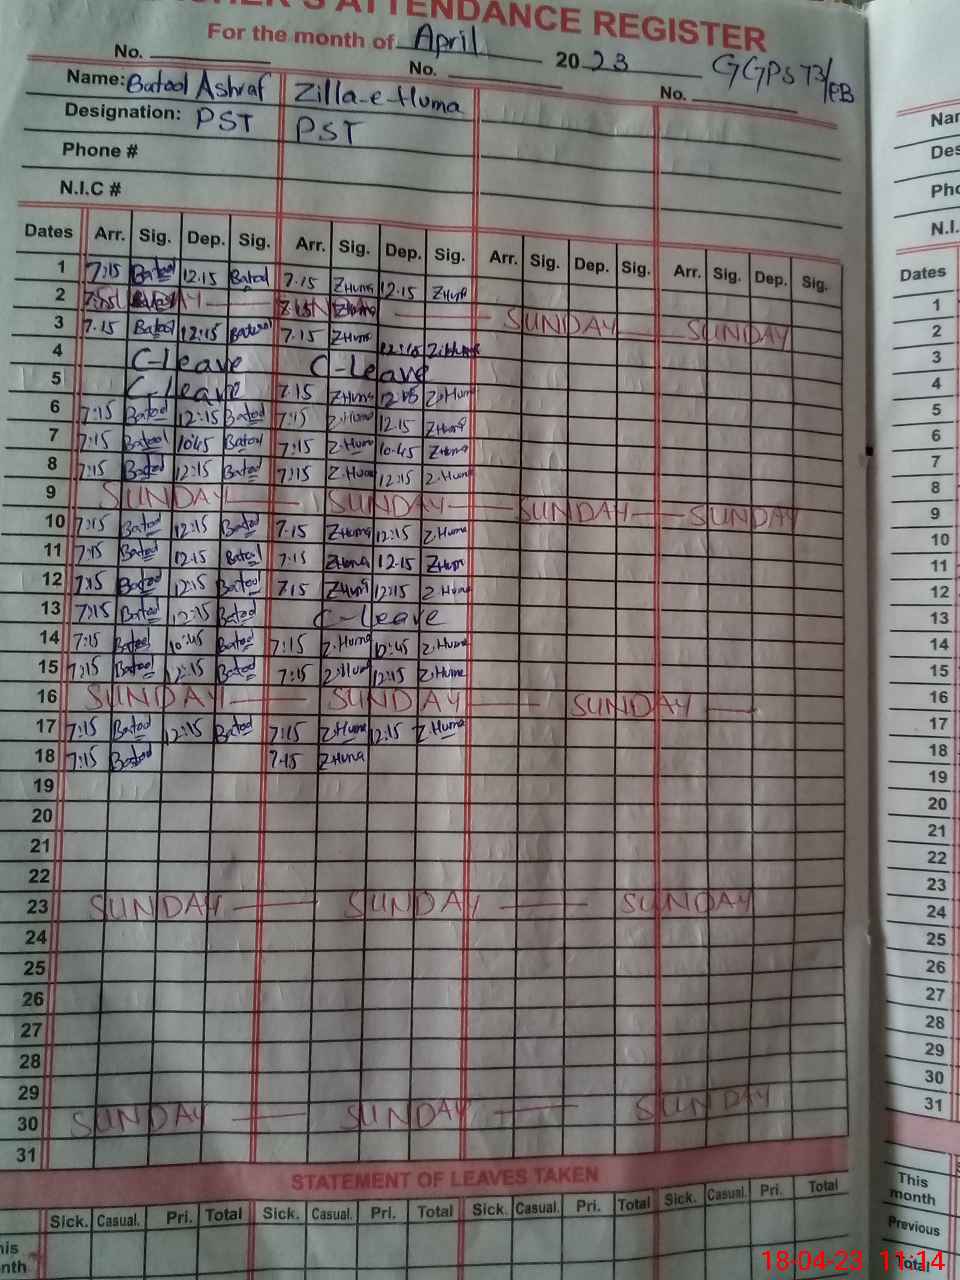 ATTENDANCE REGISTER
For the month of April 2023 GGPS 73/EB
No. No. No.
Name: Batool Ashraf Zilla-e-Huma
Designation: PST PST
Phone #
N.I.C #
Dates Arr. Sig. Dep. Sig. Arr. Sig. Dep. Sig. Arr. Sig. Dep. Sig. Arr. Sig. Dep. Sig.
1 7:15 Batool 12.15 Batool 7.15 ZHuma 12.15 ZHuma
2 SUNDAY SUNDAY
3 7.15 Batool 12:15 Batool 7.15 ZHuma 12:15 Z.Huma
4 C-leave C-leave
5 C-leave 7.15 ZHuma 12:15 Z.Huma
6 7:15 Batool 12:15 Batool 7:15 Z.Huma 12.15 ZHuma
7 7:15 Batool 10:45 Batool 7:15 Z.Hum 10.45 ZHuma
8 7:15 Batool 12:15 Batool 7:15 Z.Huma 12:15 Z.Huma
9 SUNDAY SUNDAY SUNDAY SUNDAY
10 7:15 Batool 12:15 Batool 7.15 ZHuma 12:15 Z.Huma
11 7:15 Batool 12.15 Batool 7.15 ZHuma 12.15 ZHum
12 7:15 Batool 12:15 Batool 7.15 ZHuma 12:15 Z.Huma
13 7:15 Batool 12:15 Batool C-leave
14 7:15 Batool 10:45 Batool 7:15 Z.Huma 10:45 Z.Huma
15 7:15 Batool 12:15 Batool 7:15 Z.Hum 12:15 Z.Huma
16 SUNDAY SUNDAY SUNDAY
17 7:15 Batool 12:15 Batool 7:15 Z.Huma 12:15 Z.Huma
18 7:15 Batool 7.15 ZHuma
19
20
21
22
23 SUNDAY SUNDAY SUNDAY
24
25
26
27
28
29
30 SUNDAY SUNDAY SUNDAY
31
STATEMENT OF LEAVES TAKEN
Sick. Casual. Pri. Total Sick. Casual. Pri. Total Sick. Casual. Pri. Total Sick. Casual. Pri. Total
Dates
1
2
3
4
5
6
7
8
9
10
11
12
13
14
15
16
17
18
19
20
21
22
23
24
25
26
27
28
29
30
31
This
month
Previous
Total
18-04-23 11:14